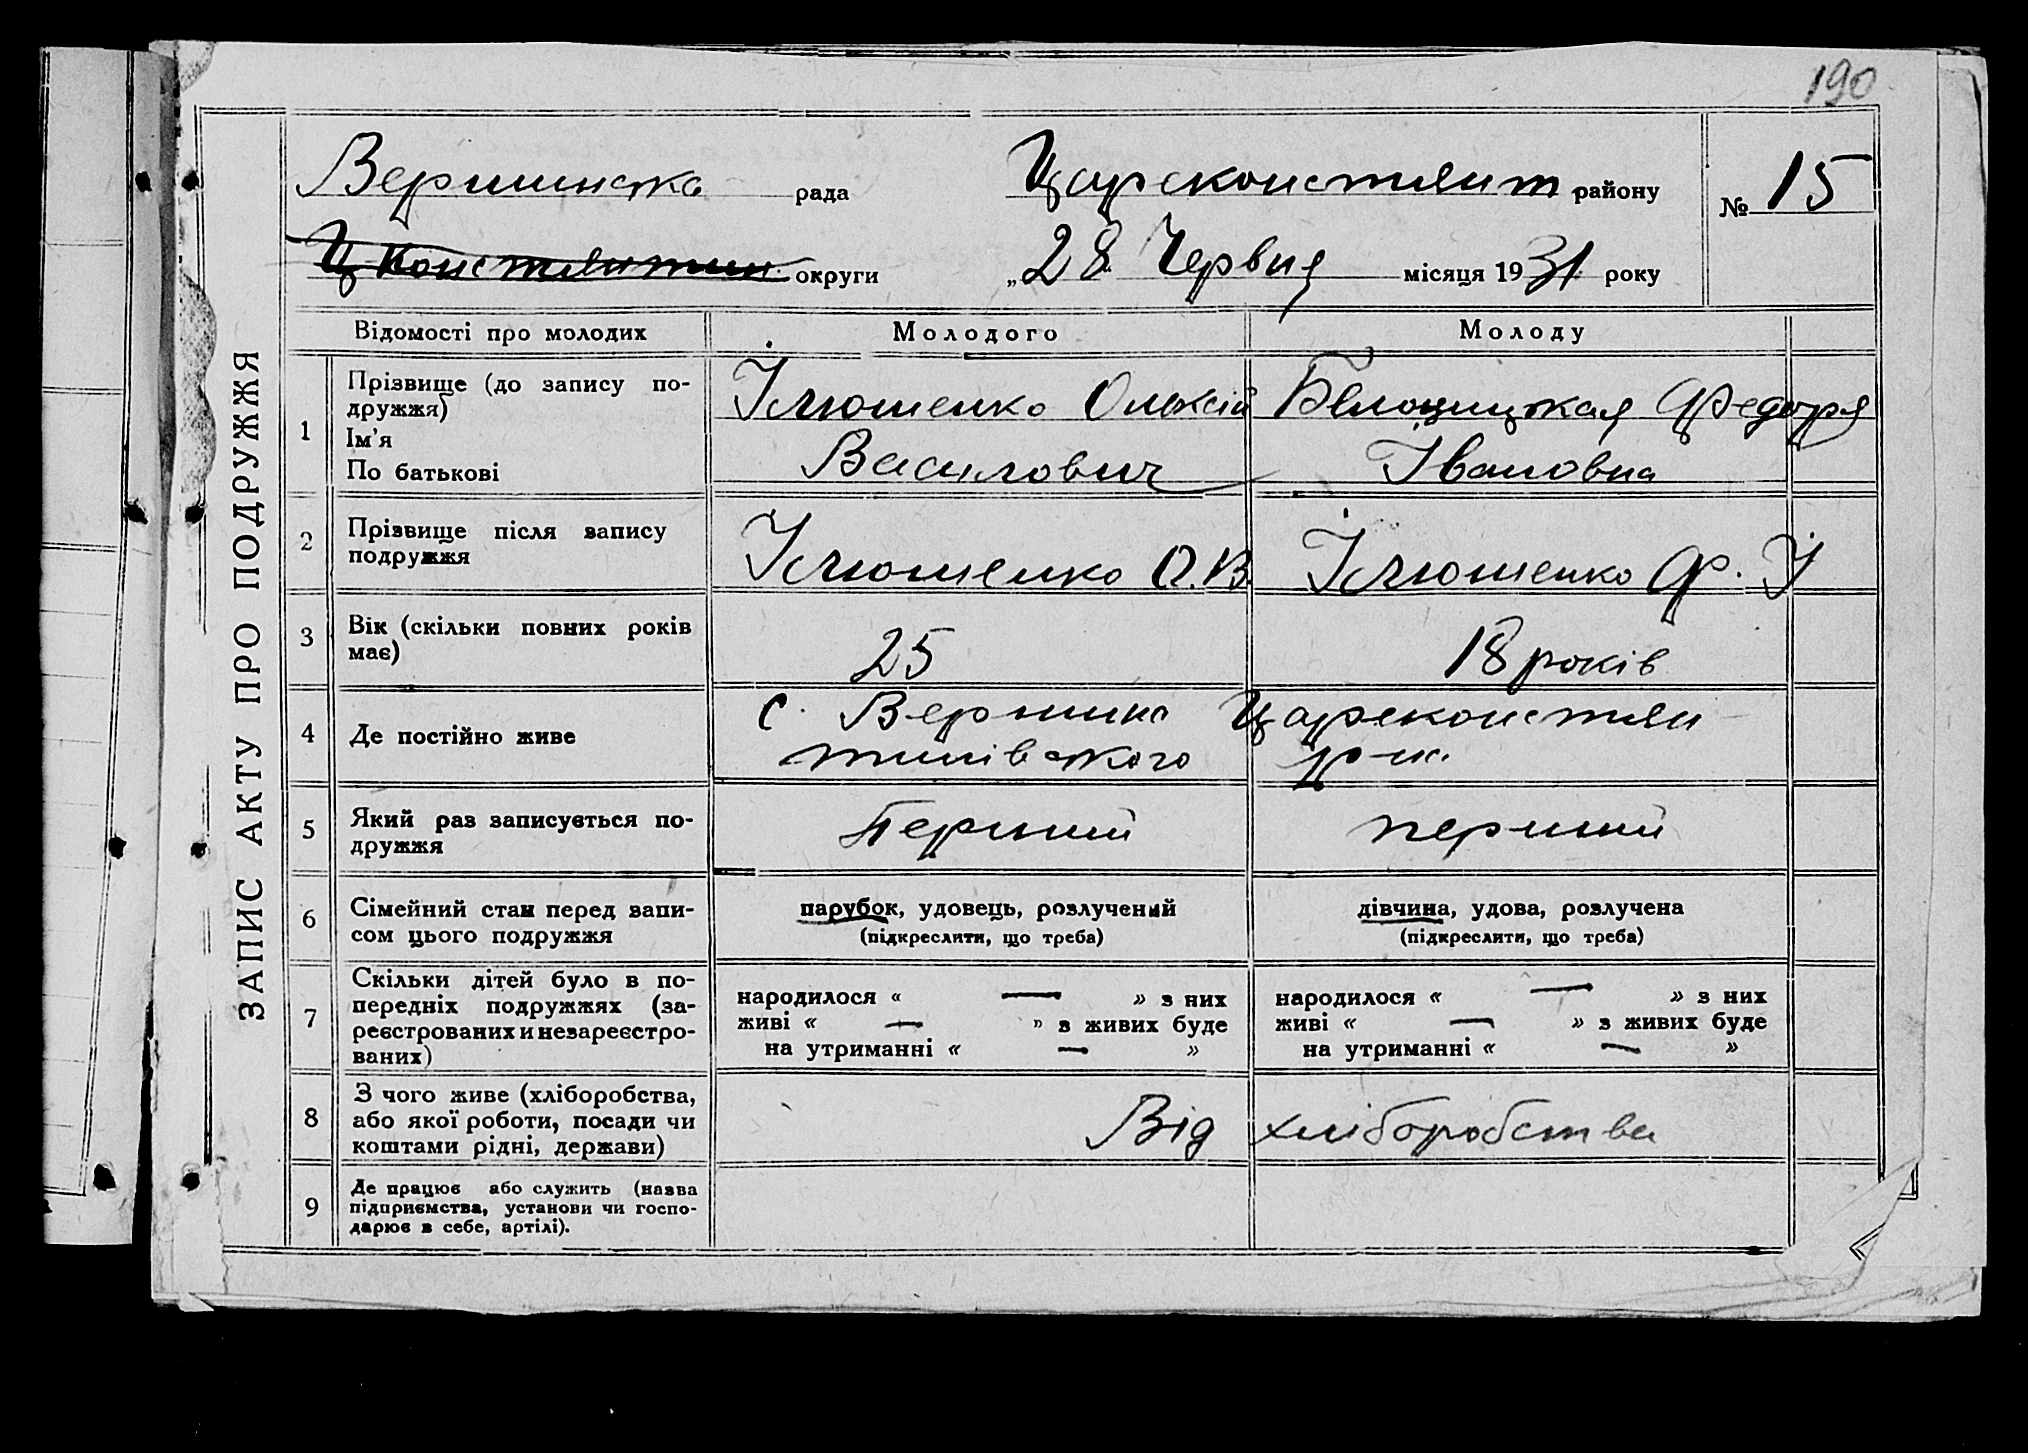 190
Вершинська рада
Царекон­стянт району
№ 15
Ц Констянтин округи
„28 Червня місяця 1931 року
ЗАПИС АКТУ ПРО ПОДРУЖЖЯ
Відомості про молодих
Молодого
Молоду
1
Прізвище (до запису по-
дружжя)
Ім'я
По батькові
Ілюшенко Олексій
Василович
Белоцицкая Федоря
Івановна
2
Прізвище після запису
подружжя
Ілюшенко О.В.
Ілюшенко Ф. І
3
Вік (скільки повних років
має)
25
18 років
4
Де постійно живе
с. Вершина Кареконстян
тинівського р-на
5
Який раз записується по-
дружжя
Перший
перший
6
Сімейний стан перед запи-
сом цього подружжя
парубок, удовець, розлучений
(підкреслити, що треба)
дівчина, удова, розлучена
(підкреслити, що треба)
7
Скільки дітей було в по-
передніх подружжях (за-
реєстрованих и незареєстро-
ваних)
народилося « — » з них
живі « — » з живих буде
на утриманні « — »
народилося « — » з них
живі « — » з живих буде
на утриманні « — »
8
З чого живе (хліборобства,
або якої роботи, посади чи
коштами рідні, держави)
Від хліборобства
9
Де працює або служить (назва
підприємства, установи чи госпо-
дарює в себе, артілі).